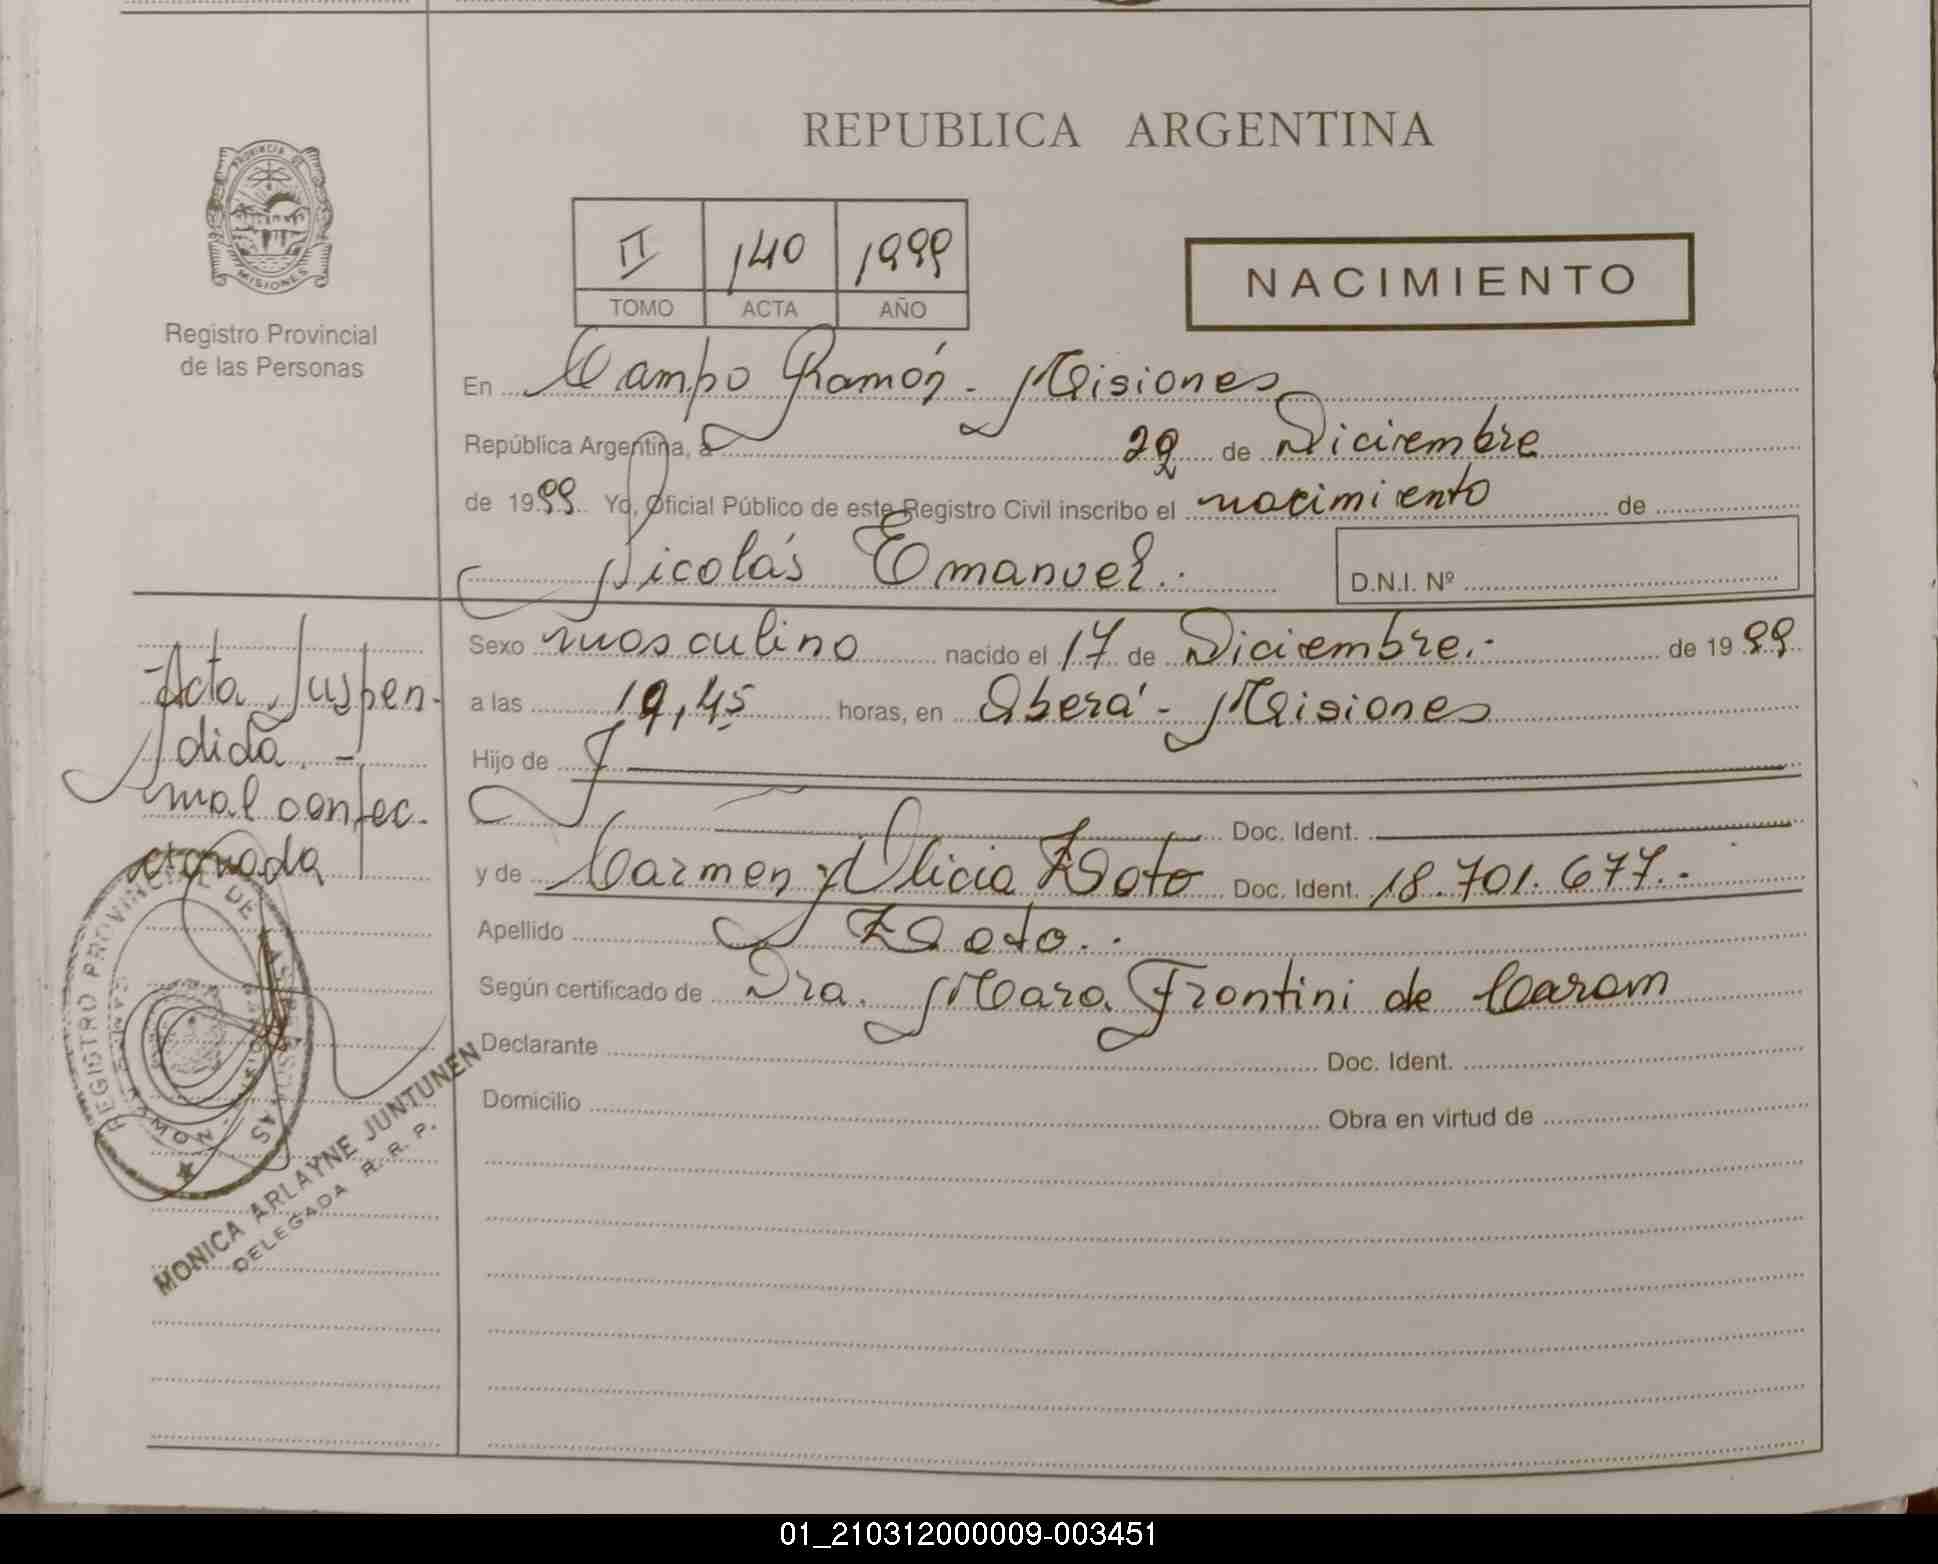 REPUBLICA ARGENTINA
PROVINCIA DE
MISIONES
Registro Provincial
de las Personas
II 140 1999
TOMO ACTA AÑO
NACIMIENTO
En Campo Ramón - Misiones
República Argentina, a 29 de Diciembre
de 1999 Yo, Oficial Público de este Registro Civil inscribo el nacimiento de
Nicolás Emanuel.-
D.N.I. Nº
Sexo masculino nacido el 17 de Diciembre.- de 1999
a las 19,45 horas, en Oberá - Misiones
Hijo de
Doc. Ident.
y de Carmen Alicia Doto Doc. Ident. 18.701.677.-
Apellido Doto.-
Según certificado de Dra. Mara Frontini de Caram
Declarante Doc. Ident.
Domicilio Obra en virtud de
Acta Suspen-
dida. -
mal confec-
cionada
REGISTRO PROVINCIAL DE LAS PERSONAS
MONICA ARLAYNE JUNTUNEN
DELEGADA R. R. P.
01_210312000009-003451